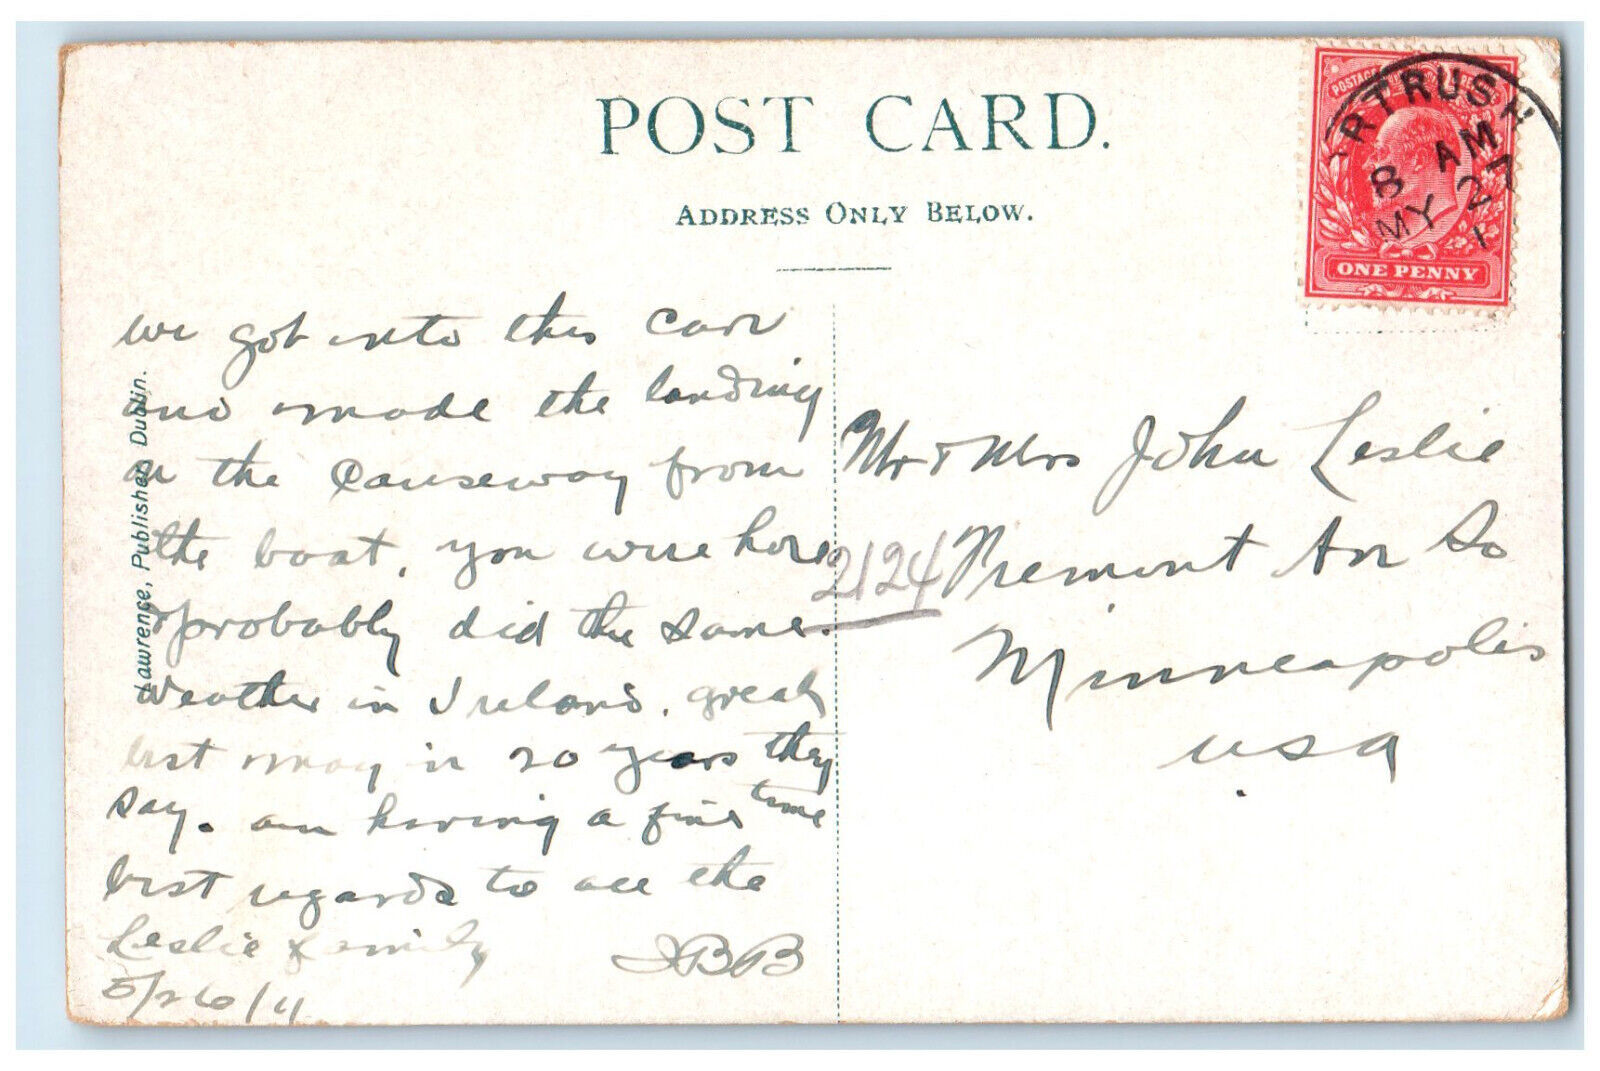 POST CARD.
ADDRESS ONLY BELOW.
RTRUSH
8 AM
MY 27
1
POSTAGE
ONE PENNY
Lawrence, Publisher, Dublin.
we got into this car
and made the landing
on the Causeway from
the boat, you were here
& probably did the same.
Weather in Ireland, great
best may in 20 years they
say. am having a fine time
best regards to all the
Leslie family
JBB
5/26/11
Mr & Mrs John Leslie
2124 Fremont Av So
Minneapolis
USA